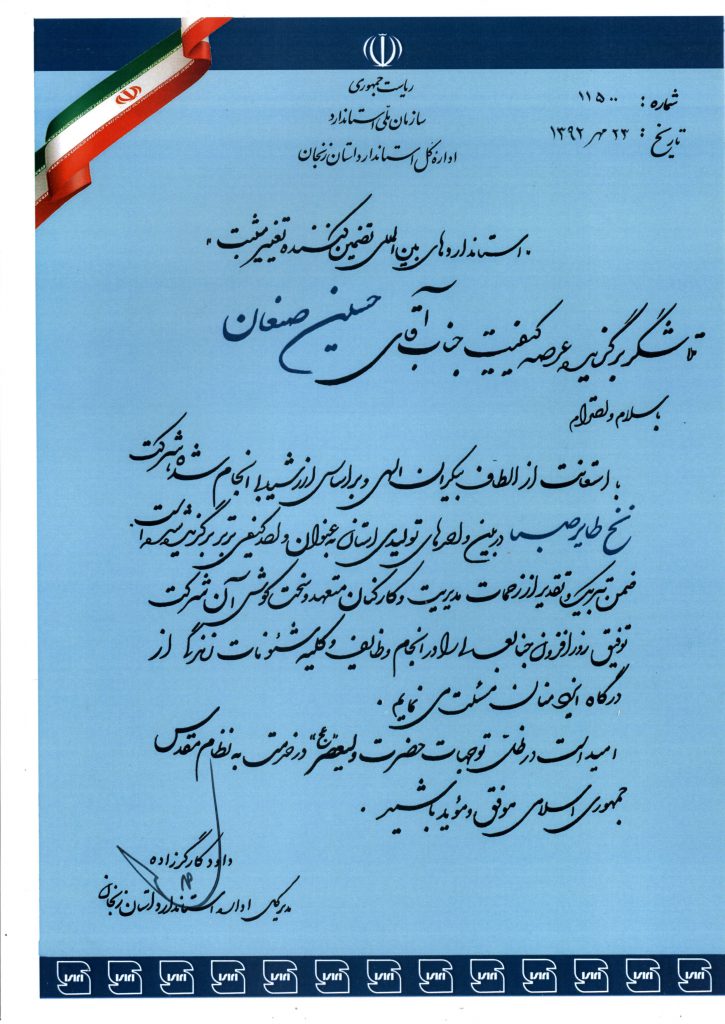 ریاست جمهوری
سازمان ملی استاندارد
اداره کل استاندارد استان زنجان
شماره : ۱۱۵۰۰
تاریخ : ۲۳ مهر ۱۳۹۲
"استانداردهای بین المللی تضمین کننده تغییر مثبت"
تلاشگر برگزیده عرصه کیفیت جناب آقای حسین صنعان
با سلام و احترام
با استعانت از الطاف بیکران الهی و بر اساس ارزشیابی انجام شده، شرکت
نخ طایر صبا در بین واحدهای تولیدی استان به عنوان واحد کیفی برتر برگزیده شده است.
ضمن تبریک و تقدیر از زحمات مدیریت و کارکنان متعهد و سخت کوش آن شرکت
توفیق روزافزون جنابعالی را در انجام وظایف و کلیه شئونات زندگی از
درگاه ایزد منان مسئلت می نمایم .
امید است در ظل توجهات حضرت ولیعصر "عج" در خدمت به نظام مقدس
جمهوری اسلامی موفق و مؤید باشید .
داود کارگرزاده
مدیرکل اداره استاندارد استان زنجان